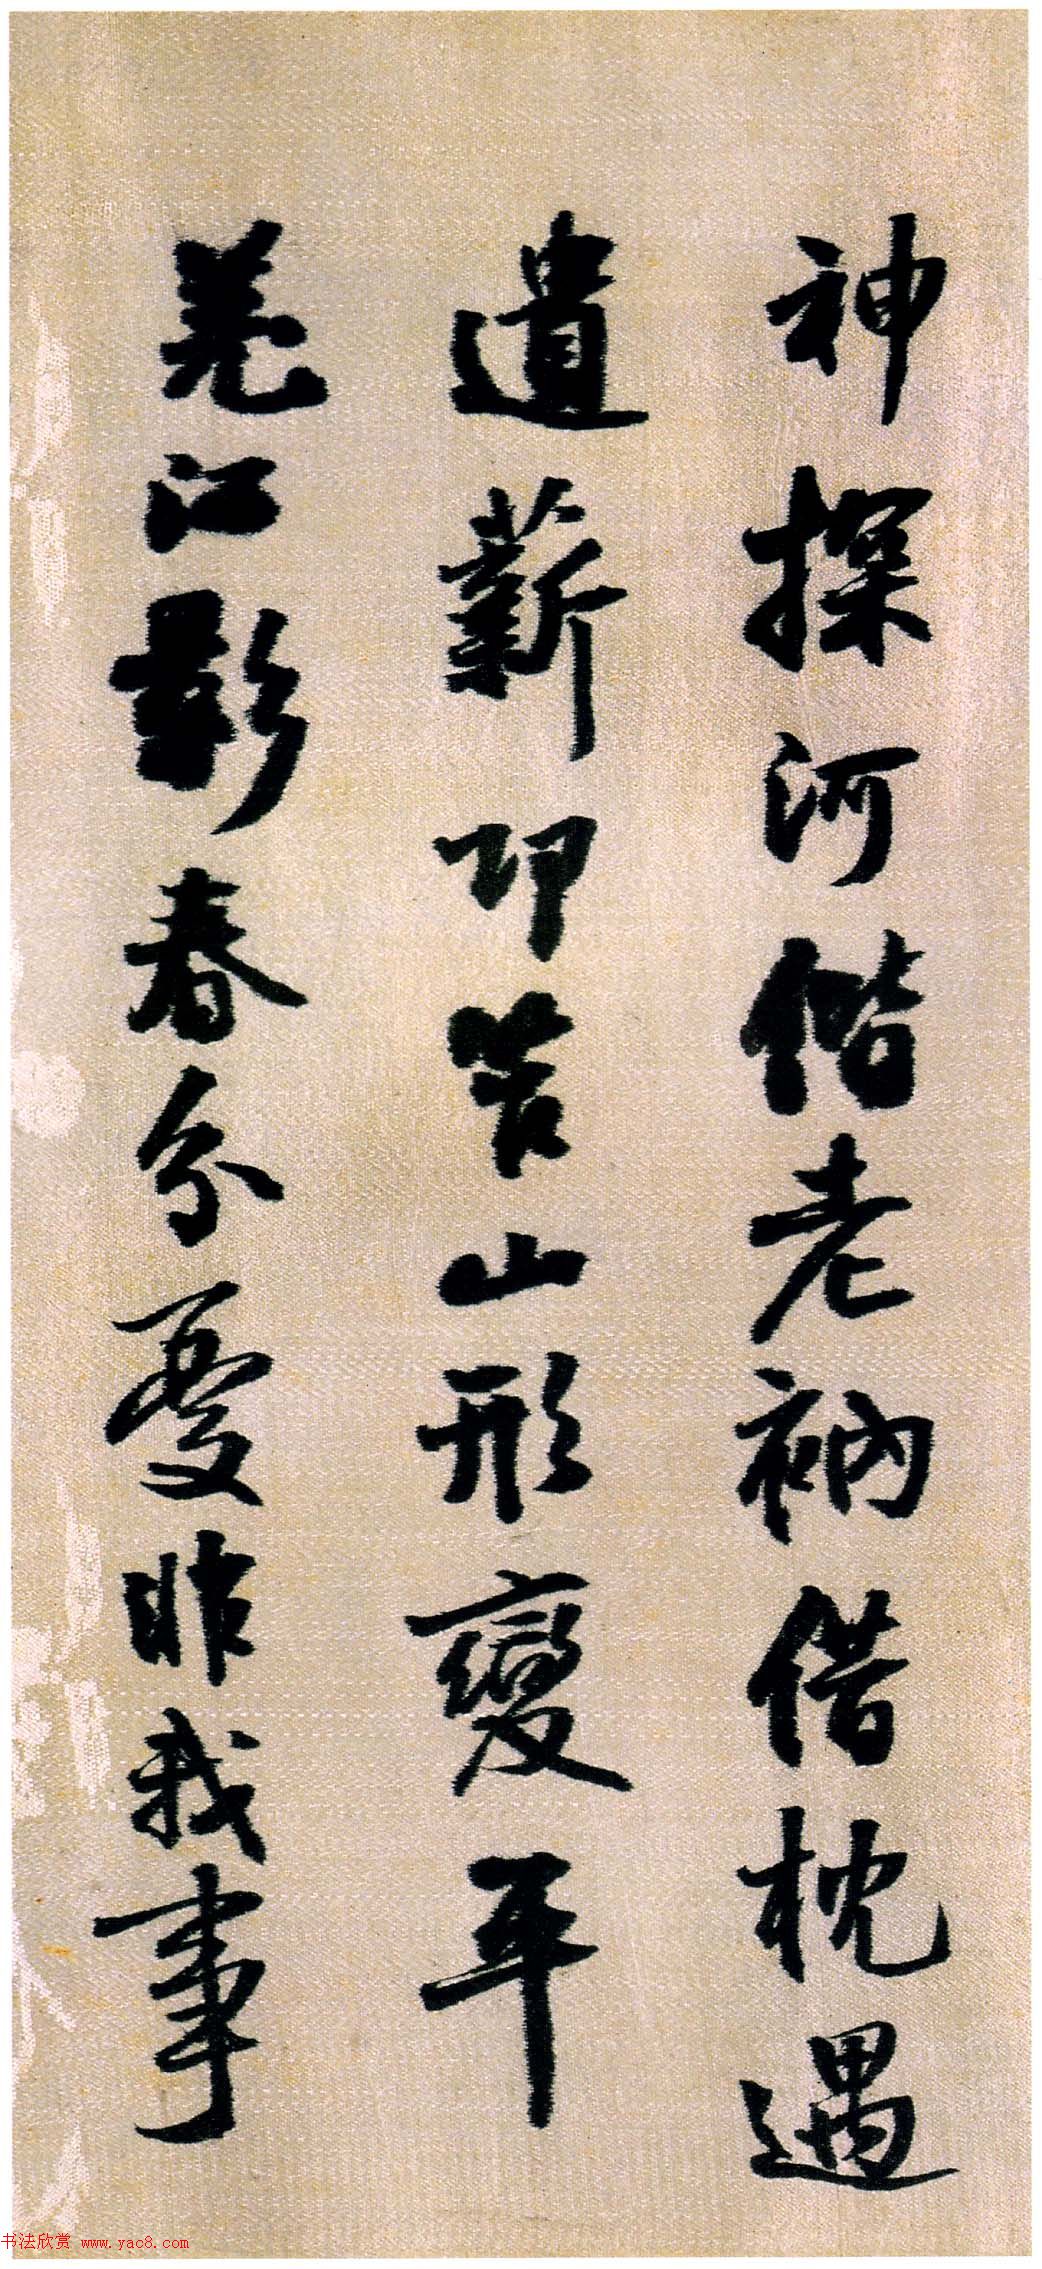 神探河偕老衲借枕遇
遺薪叩苦山形變年
羌江影春分憂非我事
书法欣赏 www.yac8.com